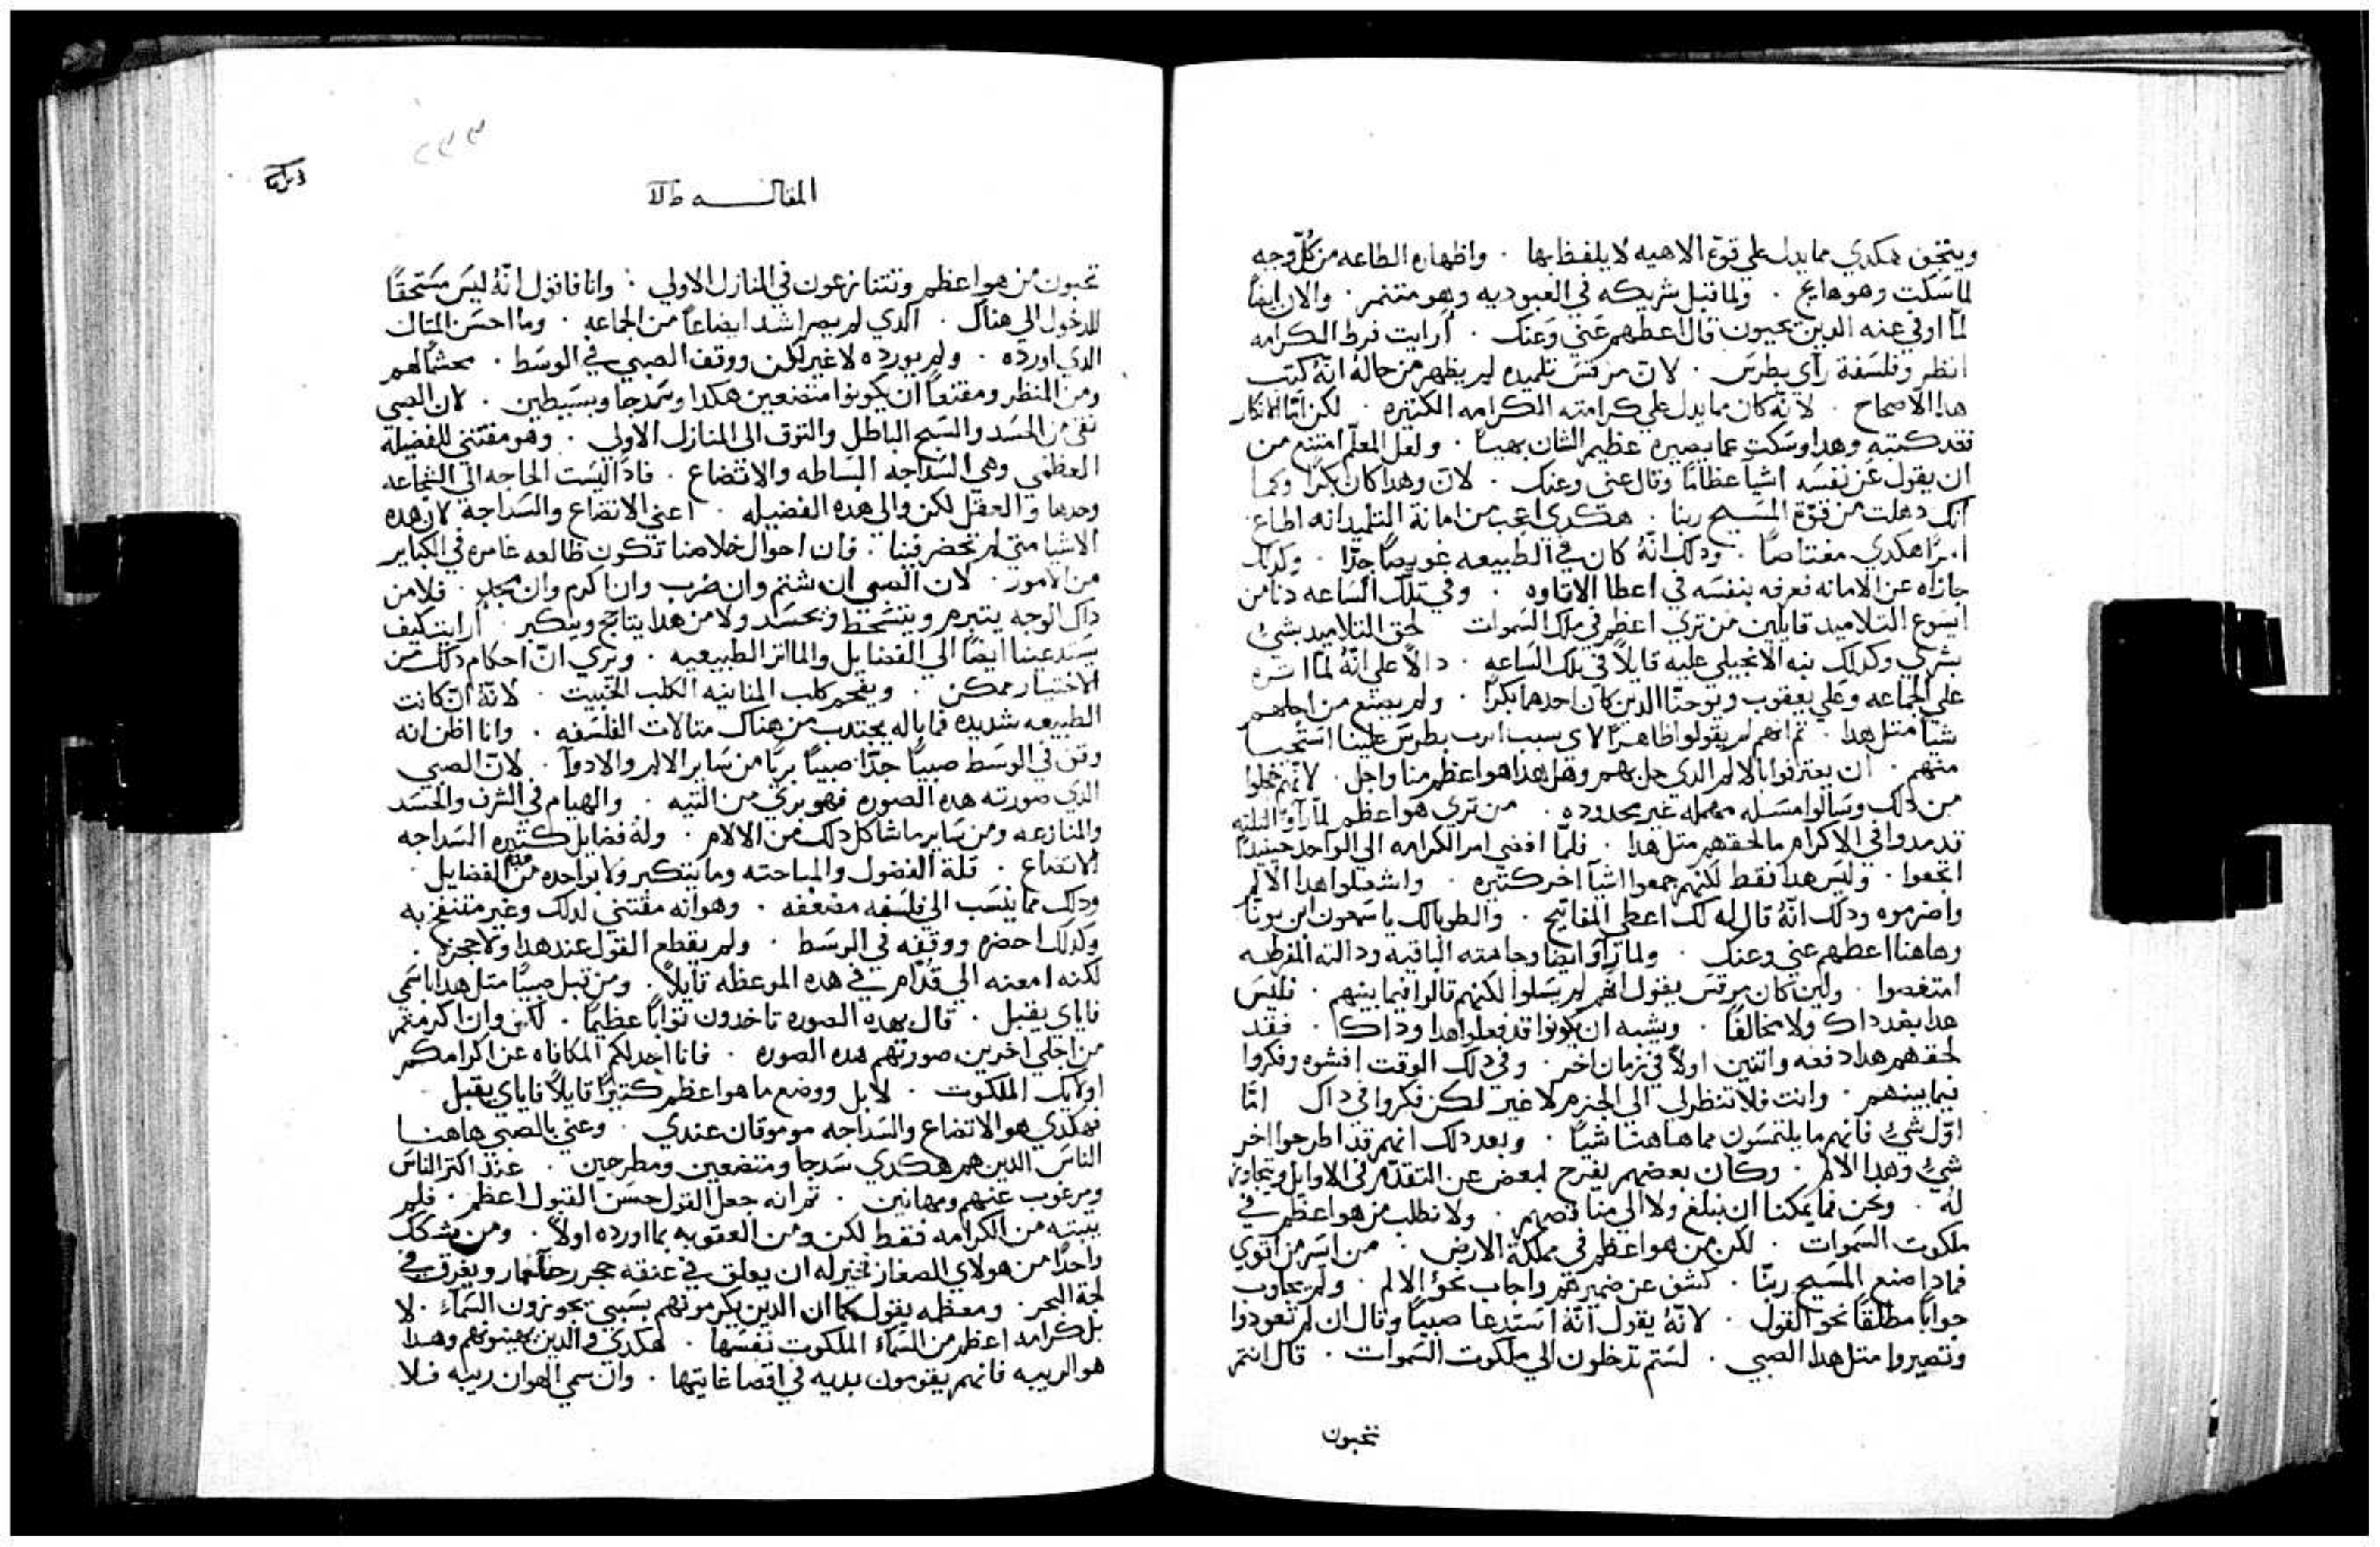 ويتجنن هكدي مما يدل علي قوة الاهيه لا يلفظ بها ٠ واظهاره الطاعه من كل وجه
لما سكت وهو هايج ٠ ولما قبل شريكه في العبوديه وهو متنمر ٠ والان ايضاً
لما اوفي عنه الدين يجبون قال اعطهم عني وعنك ٠ أرايت فرط الكرامه
انظر وفلسفة راي بطرس ٠ لان مرقس تلميده لم يظهر من حاله انه كتب
هدا الاصحاح ٠ لانه كان مما يدل علي كرامته الكرامه الكتيره ٠ لكن اما الانكار
فقد كتبه وهدا وسكت عما يصيره عظيم الشان بهياً ٠ ولعل المعلم امتنع من
ان يقول عن نفسه اشيآ عظاماً وقال عني وعنك ٠ لان وهدا كان بكراً وكما
انك دهلت من قوة المسيح ربنا ٠ هكدي اعجب من امانة التلميد انه اطاع
امراً هكدي معتاصاً ٠ ودلك انه كان في الطبيعه غويصاً جداً ٠ وكدلك
جازاه عن الامانه فعرفه بنفسه في اعطا الاتاوه ٠ وفي تلك الساعه دنا من
ايسوع التلاميد قايلين من تري اعظم في ملك السموات لحق التلاميد بشيُ
بشري وكدلك نبه الانجيلي عليه قايلاً في تلك الساعه ٠ دالاً علي انه لما اتره
علي الجماعه وعلي يعقوب ويوحنا الدين كان احدهما بكراً ٠ ولم يصنع من اجلهم
شياً متل هدا ٠ تم انهم لم يقولوا ظاهراً لاي سبب اترت بطرس علينا استحيا
منهم ٠ ان يعترفوا بالالم الدي حل بهم وهل هدا هو اعظم منا واجل ٠ لانهم خجلوا
من دلك وسالوا مسله مهمله غير محدوده ٠ من تري هو اعظم لما راوا التلته
قد مدوا في الاكرام ما لحقهم متل هدا ٠ فلما افضي امر الكرامه الي الواحد حينيداً
اتجعوا ٠ وليس هدا فقط لكنهم جمعوا اشيآ اخر كتيره ٠ واشعلوا هدا الالم
واضرموه ودلك انه قال له لك اعطي المفاتيح ٠ والطوبا لك يا سمعون ابن يونا
وهاهنا اعطهم عني وعنك ٠ ولما راوا ايضاً وجاهته الباقيه ودالته المفرطه
امتغصوا ٠ ولين كان مرقس يقول انهم لم يسلوا لكنهم قالوا فيما بينهم ٠ فليس
هدا بضد داك ولا مخالفاً ٠ ويشبه ان يكونوا قد فعلوا هدا وداك ٠ فقد
لحقهم هدا دفعه واتنين اولاً في زمان اخر ٠ وفي دلك الوقت افشوه وفكروا
فيما بينهم ٠ وانت فلا تنظر لي الي الجرم لا غير لكن فكروا في داك اما
اول شيُ فانهم ما يلتمسون مما هاهنا شياً ٠ وبعد دلك انهم قد اطرحوا اخر
شيُ وهدا الالم ٠ وكان بعضهم يفرج لبعض عن التقدم في الاوايل ويتجاوز
له ٠ ونحن فما يمكنا ان نبلغ ولا الي مناقصهم ٠ ولا نطلب من هو اعظم في
ملكوت السموات ٠ لكن من هو اعظم في مملكة الارض ٠ من ايسر من اقوي
فمادا صنع المسيح ربنا ٠ كشف عن ضميرهم واجاب نحو الالم ٠ ولم يجاوب
جواباً مطلقاً نحو القول ٠ لانه يقول انه استدعا صبياً وقال ان لم تعودوا
وتصيروا متل هدا الصبي ٠ لستم تدخلون الي ملكوت السموات ٠ قال انتم
تجبون
٢٣٣
المقاله
تجبون من هو اعظم وتتنازعون في المنازل الاولي ٠ وانا فاقول انه ليس مستحقاً
للدخول الي هناك ٠ الدي لم يصر اشد ايضاعاً من الجماعه ٠ وما احسن المتال
الدي اورده ٠ ولم يورده لا غير لكن ووقف الصبي في الوسط ٠ محشماً لهم
ومن المنظر ومقنعاً ان يكونوا متضعين هكدا وسدجا وبسيطين ٠ لان الصبي
نقي من الحسد والسبح الباطل والتوق الي المنازل الاولي ٠ وهو مقتني للفضيله
العظمي وهي السداجه البساطه والاتضاع ٠ فاداً ليست الحاجه الي الشجاعه
وحدها والعقل لكن والي هده الفضيله ٠ اعني الاتضاع والسداجه لان هده
الاشيا متي لم تحضر فينا ٠ فان احوال خلاصنا تكون ظالعه غامره في الكباير
من الامور ٠ لان الصبي ان شتم وان ضرب وان اكرم وان مجد ٠ فلا من
داك الوجه يتبرم ويتسخط ويحسد ولا من هدا يتاجج ويتكبر ٠ أرايت كيف
يستدعينا ايضاً الي الفضايل والماتر الطبيعيه ٠ ويري ان احكام دلك من
الاختيار ممكن ٠ ويفحم كلب المنانيه الكلب الخبيت ٠ لانه ان كانت
الطبيعه شديده فما باله يجتدب من هناك متالات الفلسفه ٠ وانا اظن انه
وقف في الوسط صبياً جداً صبياً برياً من ساير الالام والادوآ ٠ لان الصبي
الدي صورته هده الصوره فهو بري من التيه ٠ والهيام في الشرف والحسد
والمنازعه ومن ساير ما شاكل دلك من الالام ٠ وله فضايل كتيره السداجه
الاتضاع ٠ قلة الفضول والمباحته وما يتكبر ولا بواحده من هده الفضايل ٠
ودلك مما ينسب الي فلسفه مضعفه ٠ وهو انه مقتني لدلك وغير منتفخ به
وكدلك احضره ووقفه في الوسط ٠ ولم يقطع القول عند هدا ولا حجزه ٠
لكنه امعنه الي قدام في هده الموعظه قايلاً ٠ ومن قبل صبياً متل هدا باسمي
فاياي يقبل ٠ قال بهده الصوره تاخدون تواباً عظيماً ٠ لكن وان اكرمتم
من اجلي اخرين صورتهم هده الصوره ٠ فانا اجد لكم المكافاه عن اكرامكم
اولايك الملكوت ٠ لا بل ووضع ما هو اعظم كتيراً قايلاً فاياي يقبل ٠
فهكدي هو الاتضاع والسداجه موموقان عندي ٠ وعني بالصبي هاهنا
الناس الدين هم هكدي سدجا ومتضعين ومطرحين ٠ عند اكتر الناس
ومرغوب عنهم ومهانين ٠ تم انه جعل القول حسن القبول اعظم ٠ فلم
يبته من الكرامه فقط لكن ومن العقوبه بما اورده اولاً ٠ ومن شكك
واحداً من هولاي الصغار فخير له ان يعلق في عنقه حجر رحا حمار ويغرق في
لجة البحر ٠ ومعظمه يقول كما ان الدين يكرمونهم بسببي يحوزون السمآء ٠ لا
بل كرامه اعظم من السمآء الملكوت نفسها ٠ هكدي والدين يهينونهم وهدا
هو الريبه فانهم يقومون بديه في اقصا غايتها ٠ وان سمي الهوان ريبه فلا